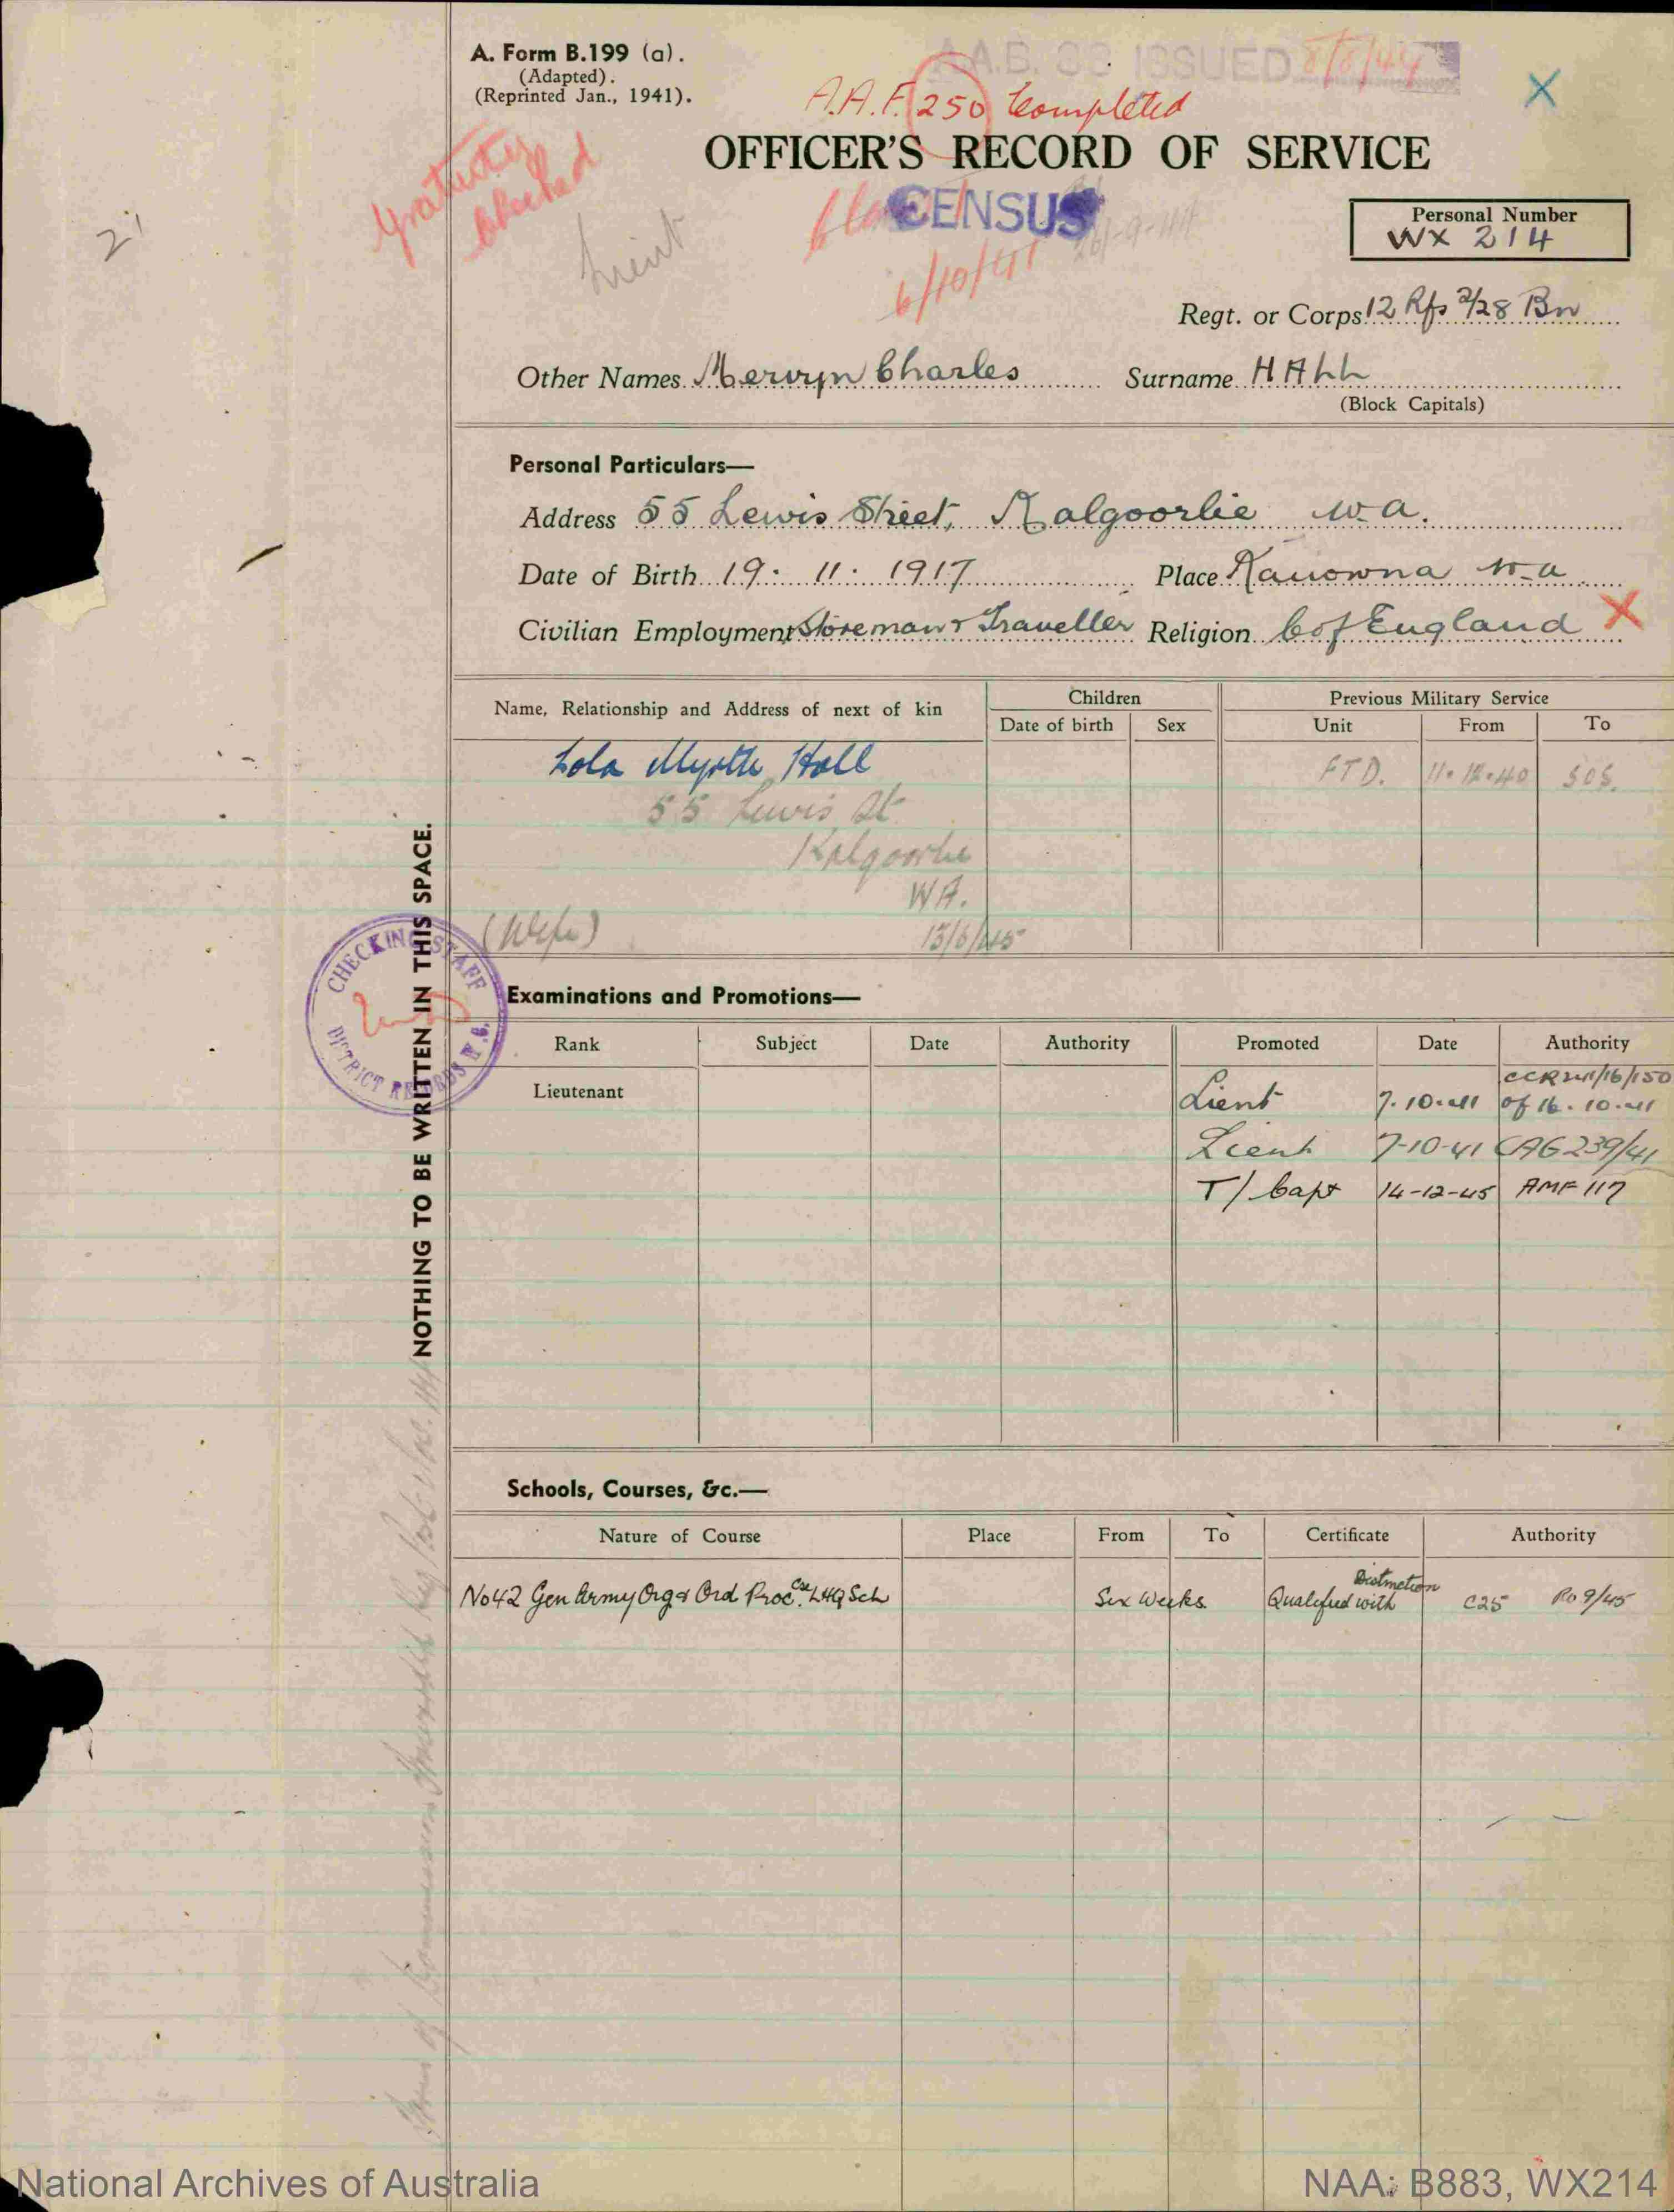 A. Form B.199 (a).
(Adapted).
(Reprinted Jan., 1941).
A.A.B. 83 ISSUED 8/8/44
A.A.F. 250 Completed
Gratuity
Checked
Lieut
OFFICER'S RECORD OF SERVICE
CENSUS
6/10/41
Personal Number
WX 214
Regt. or Corps 12 Rfs 2/28 Bn
Other Names Mervyn Charles Surname HALL
(Block Capitals)
Personal Particulars—
Address 55 Lewis Street, Kalgoorlie W.A.
Date of Birth 19. 11. 1917 Place Kanowna W.A
Civilian Employment Storeman & Traveller Religion C of England
Name, Relationship and Address of next of kin Children Previous Military Service
Date of birth Sex Unit From To
Lola Myrtle Hall FTD. 11.12.40 SOS.
55 Lewis St
Kalgoorlie
WA.
(Wife) 13/6/45
CHECKING STAFF
DISTRICT RECORDS
NOTHING TO BE WRITTEN IN THIS SPACE.
Examinations and Promotions—
Rank Subject Date Authority Promoted Date Authority
Lieutenant Lieut 7.10.41 CCR 241/16/150 of 16.10.41
Lieut 7-10-41 CAG 239/41
T/Capt 14-12-45 AMF 117
Schools, Courses, &c.—
Nature of Course Place From To Certificate Authority
No 42 Gen Army Org & Ord Proc Cse LHQ Sch Six Weeks Qualified with Distinction C25 RO 9/45
National Archives of Australia NAA: B883, WX214